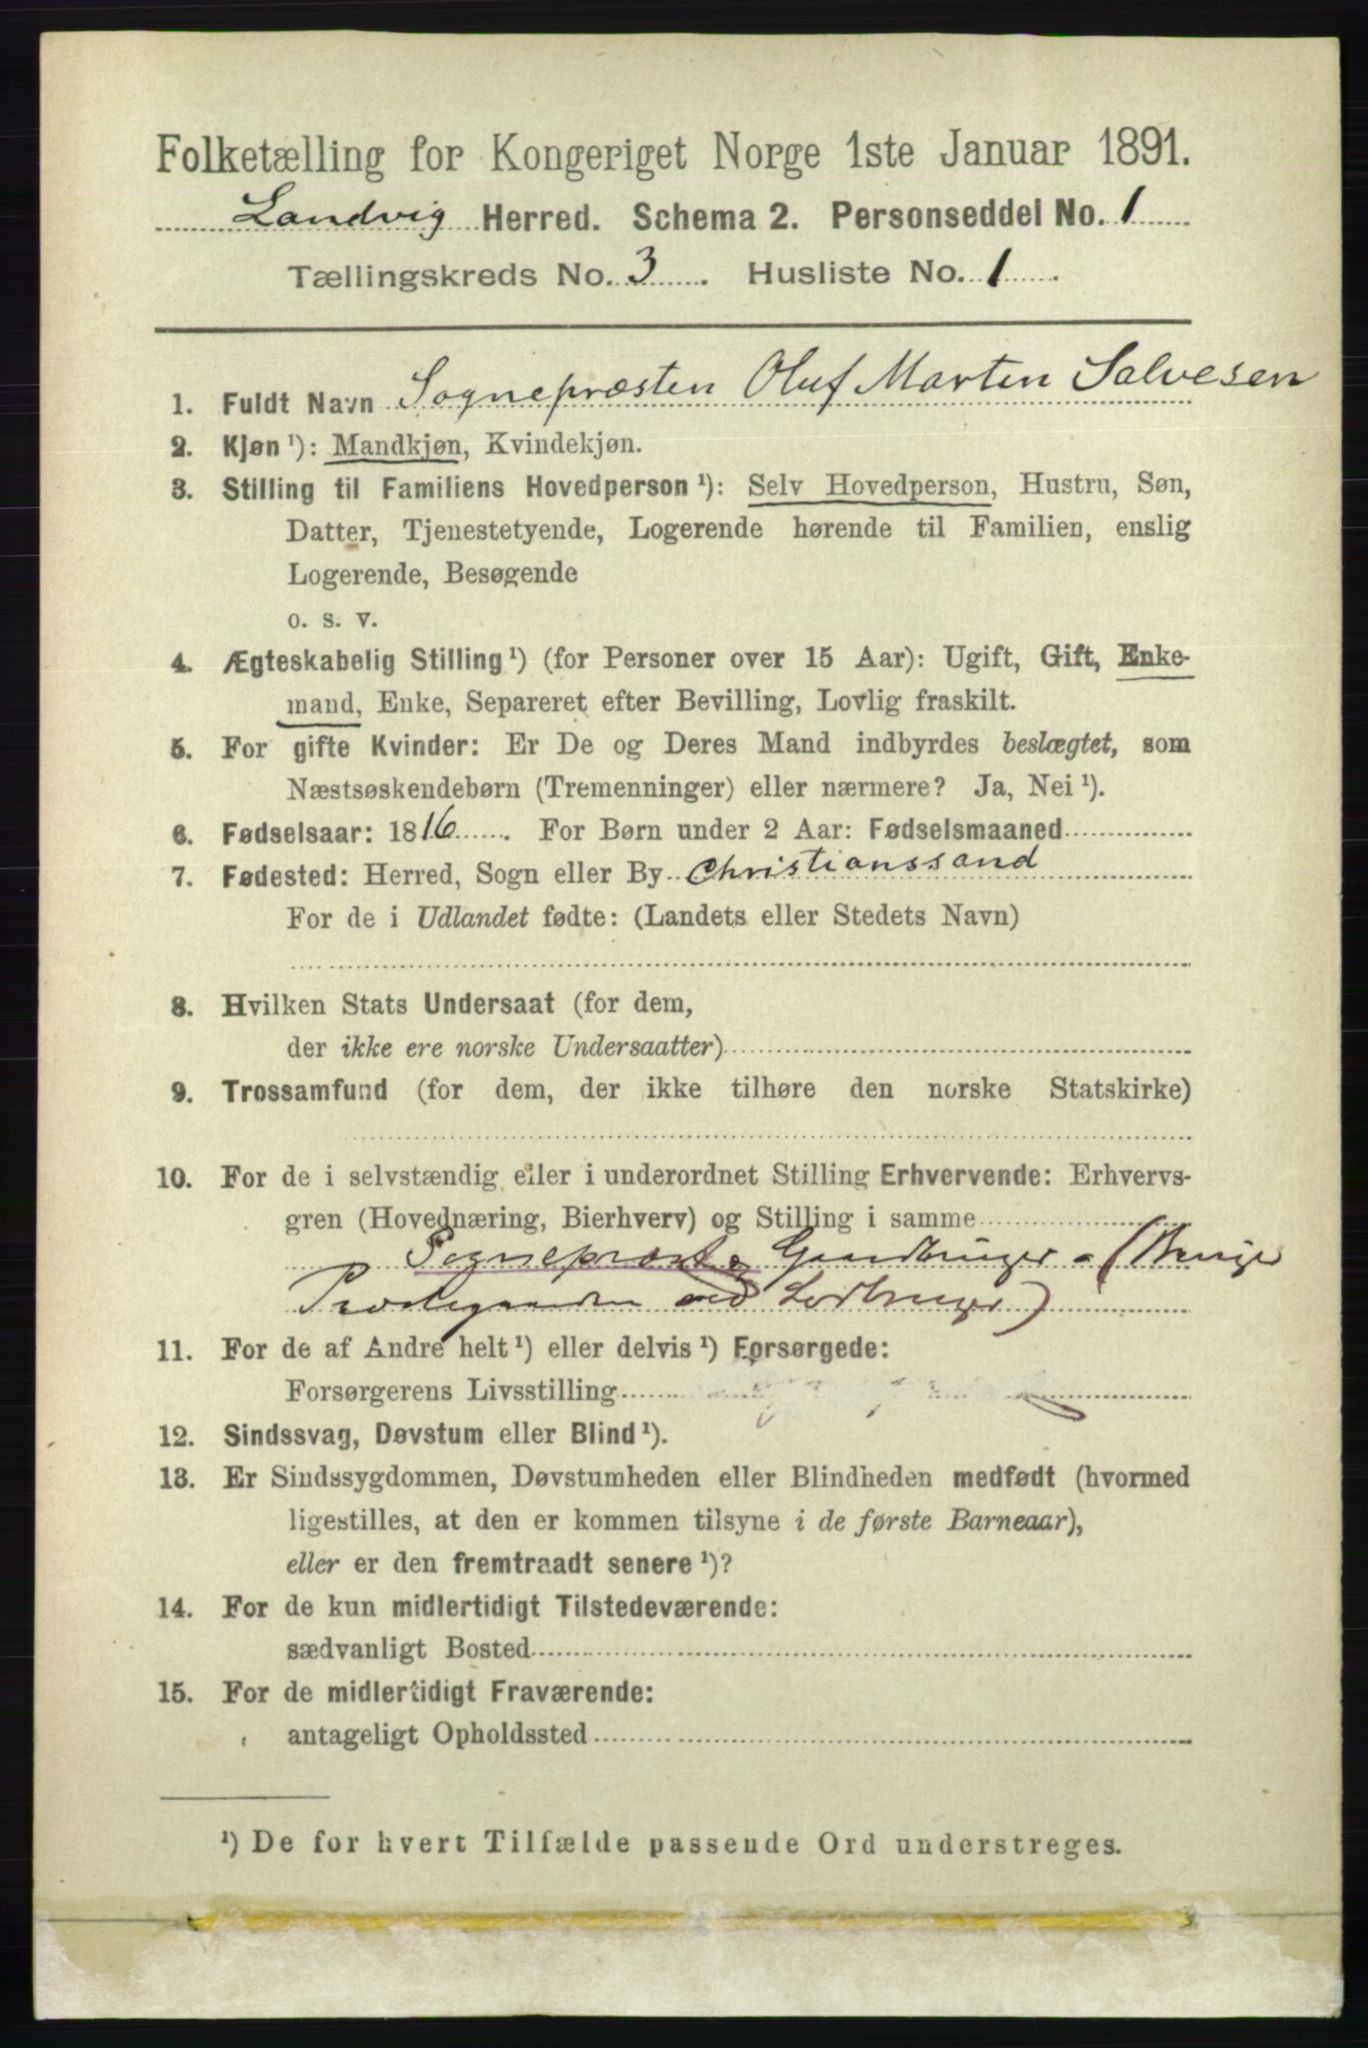 Folketælling for Kongeriget Norge 1ste Januar 1891.
Landvig Herred. Schema 2. Personseddel No. 1
Tællingskreds No. 3. Husliste No. 1.
1. Fuldt Navn Sognepræsten Oluf Marten Salvesen
2. Kjøn ¹): Mandkjøn, Kvindekjøn.
3. Stilling til Familiens Hovedperson ¹): Selv Hovedperson, Hustru, Søn,
Datter, Tjenestetyende, Logerende hørende til Familien, enslig
Logerende, Besøgende
o. s. v.
4. Ægteskabelig Stilling ¹) (for Personer over 15 Aar): Ugift, Gift, Enke-
mand, Enke, Separeret efter Bevilling, Lovlig fraskilt.
5. For gifte Kvinder: Er De og Deres Mand indbyrdes beslægtet, som
Næstsøskendebørn (Tremenninger) eller nærmere? Ja, Nei ¹).
6. Fødselsaar: 1816. For Børn under 2 Aar: Fødselsmaaned
7. Fødested: Herred, Sogn eller By Christianssand
For de i Udlandet fødte: (Landets eller Stedets Navn)
8. Hvilken Stats Undersaat (for dem,
der ikke ere norske Undersaatter)
9. Trossamfund (for dem, der ikke tilhøre den norske Statskirke)
10. For de i selvstændig eller i underordnet Stilling Erhvervende: Erhvervs-
gren (Hovednæring, Bierhverv) og Stilling i samme
Sognepræst & Gaardbruger - (Bruger
Præstegaarden ved Lodbruger)
11. For de af Andre helt ¹) eller delvis ¹) Forsørgede:
Forsørgerens Livsstilling
12. Sindssvag, Døvstum eller Blind ¹).
13. Er Sindssygdommen, Døvstumheden eller Blindheden medfødt (hvormed
ligestilles, at den er kommen tilsyne i de første Barneaar),
eller er den fremtraadt senere ¹)?
14. For de kun midlertidigt Tilstedeværende:
sædvanligt Bosted
15. For de midlertidigt Fraværende:
antageligt Opholdssted
¹) De for hvert Tilfælde passende Ord understreges.